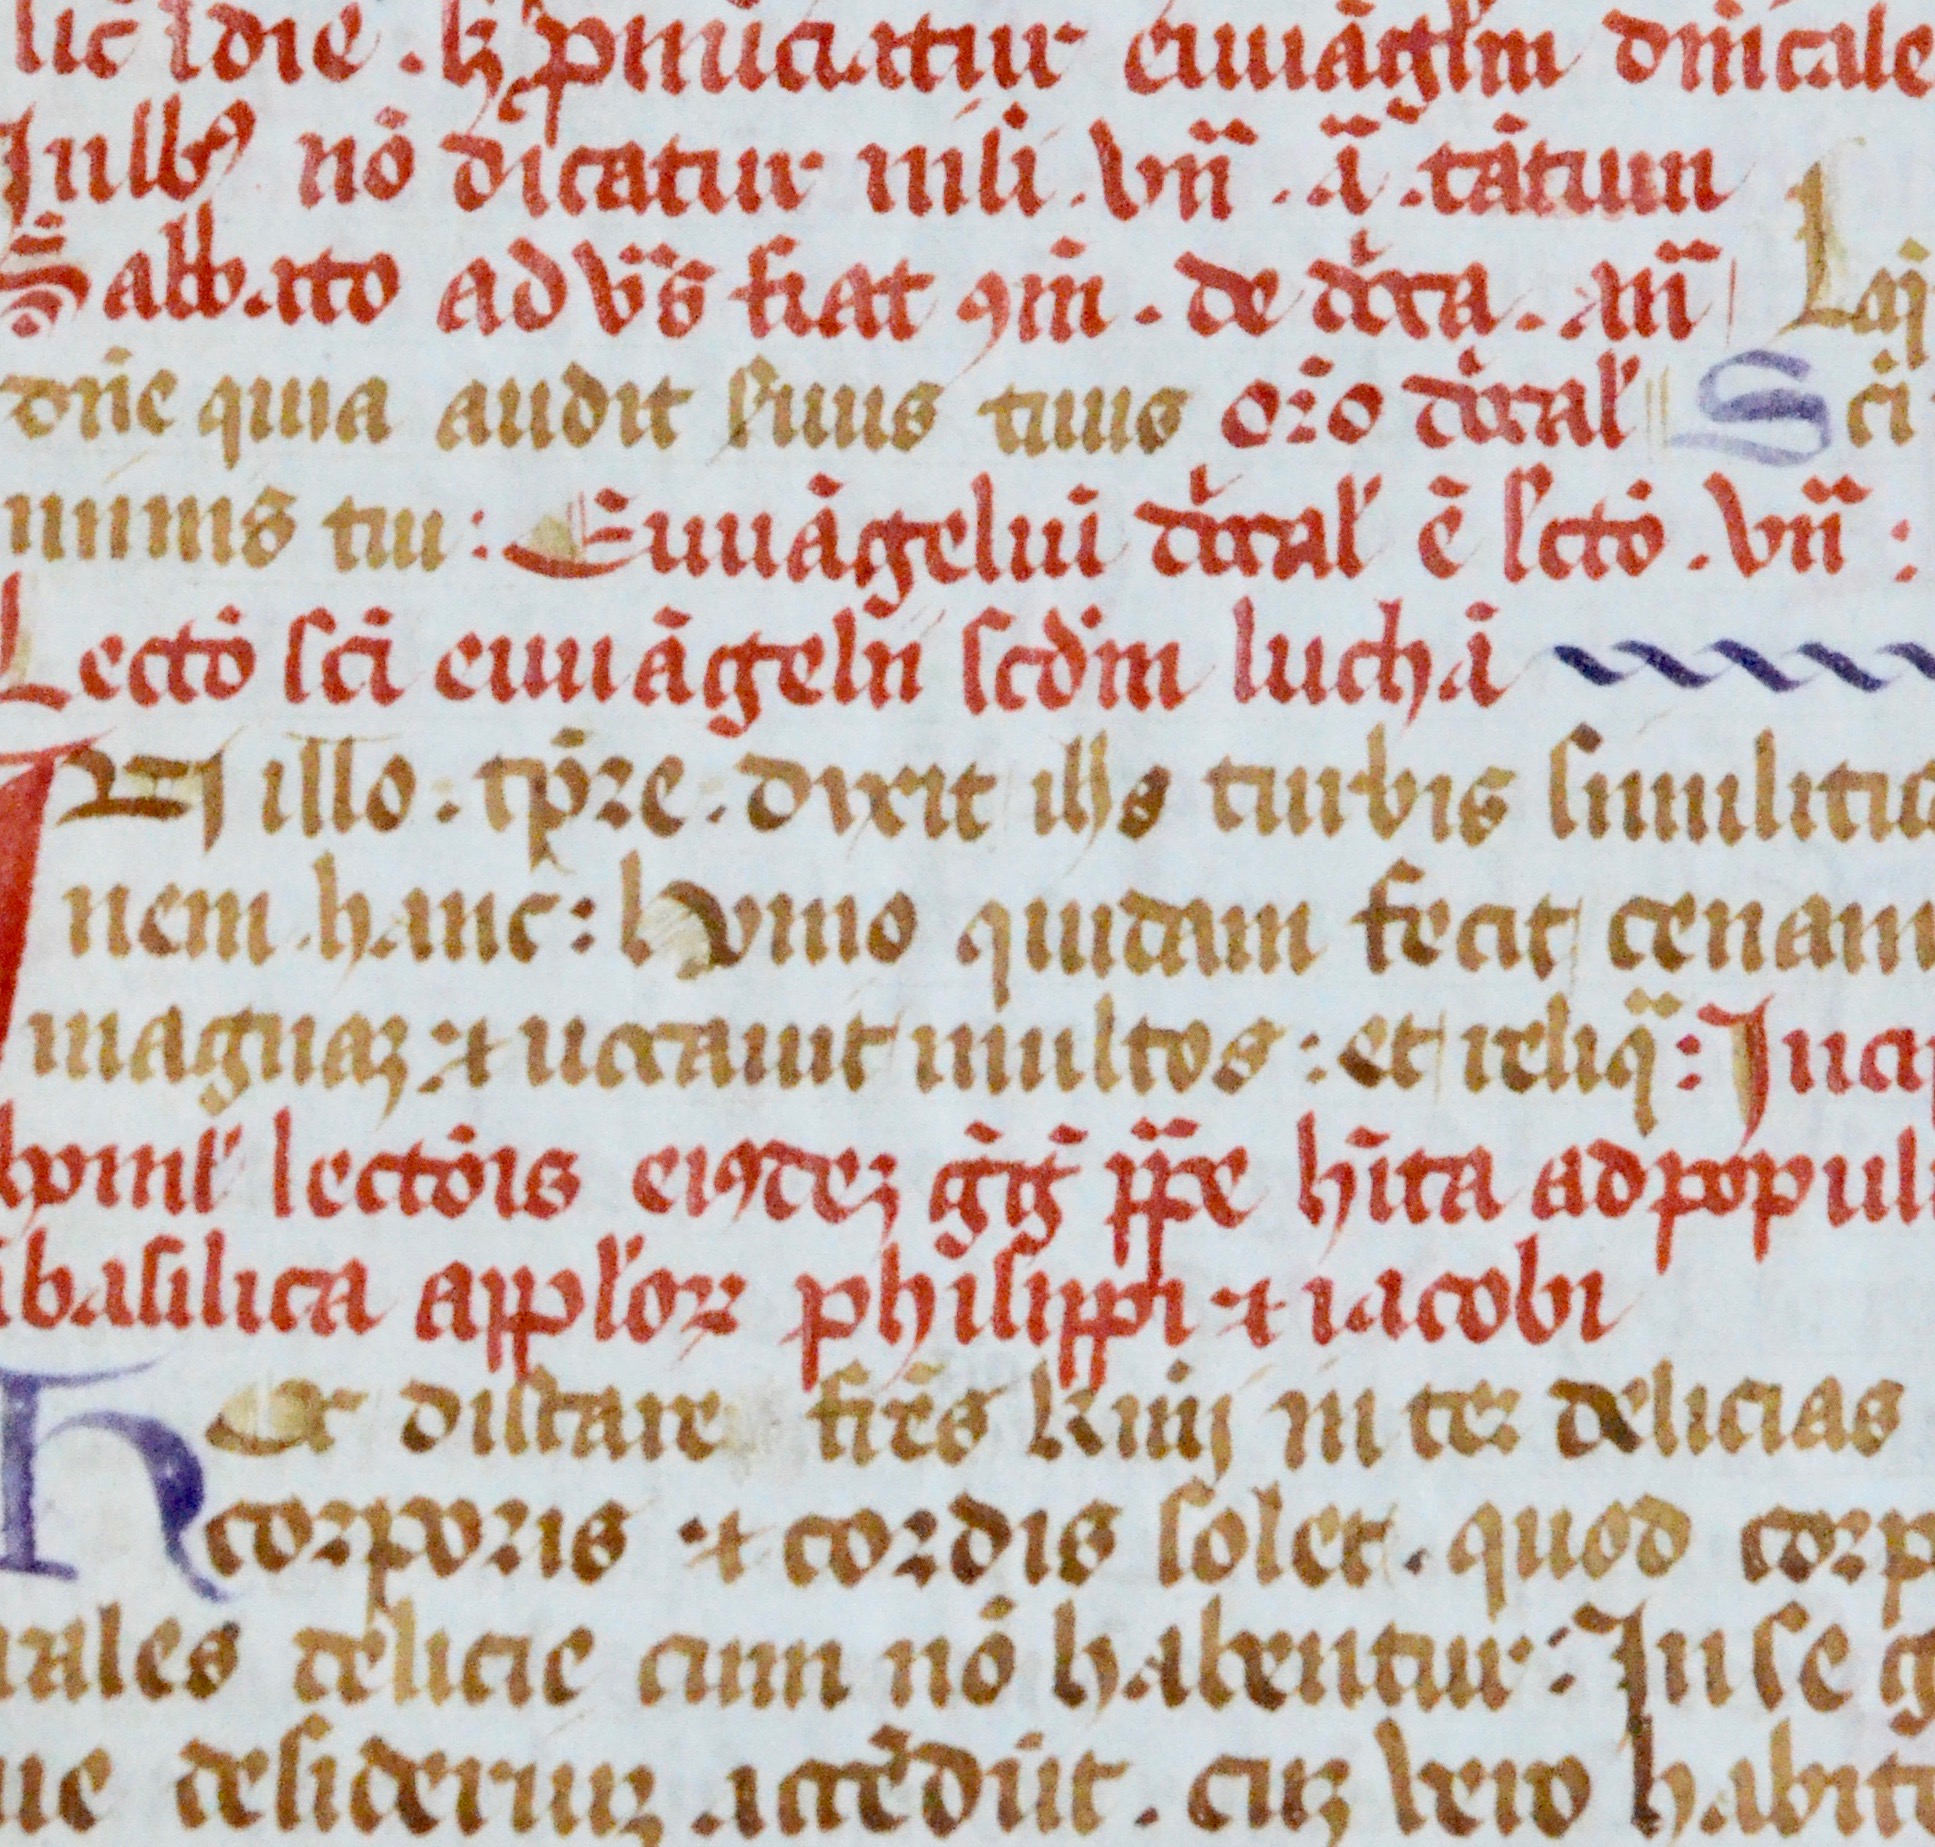 lic̄ ī die . lꝫ ꝓnūciatur euuāgłm dn̄icale
Jn llbꝰ nō dicatur nisi . vıı̄ . ā . tātum
Sabbato ad vs̄ fiat ꝯm̄ . de dn̄ica . An̄ Loq̄
dn̄e quia audit ſuus tuus oꝛo dn̄ical' Sc̄i
minis tui : Euuāgeliū dn̄ical' ē lcto . vıı̄ :
Lectō sc̄i euuāgelii ſcd̄m luchā
IN illo . tp̄ꝛe . dixit ihs turbis similitu
nem hanc : homo quidam fecit cenam
magnaꝫ ⁊ uocauit multos : et reliq̄ : Inci
homil' lectōis eiꝰdeꝫ gḡ pp̄e hīta ad popul
ī basilica appl'oꝝ philippi ⁊ iacobi
Hoc distare fr̄es kmı̄ in teꝛ delicias
coꝛpoꝛis ⁊ coꝛdis solet . quod coꝛp
rales delicie cum nō habentur : In se g
ue desideriuꝫ accēdūt . cuꝫ vero habit